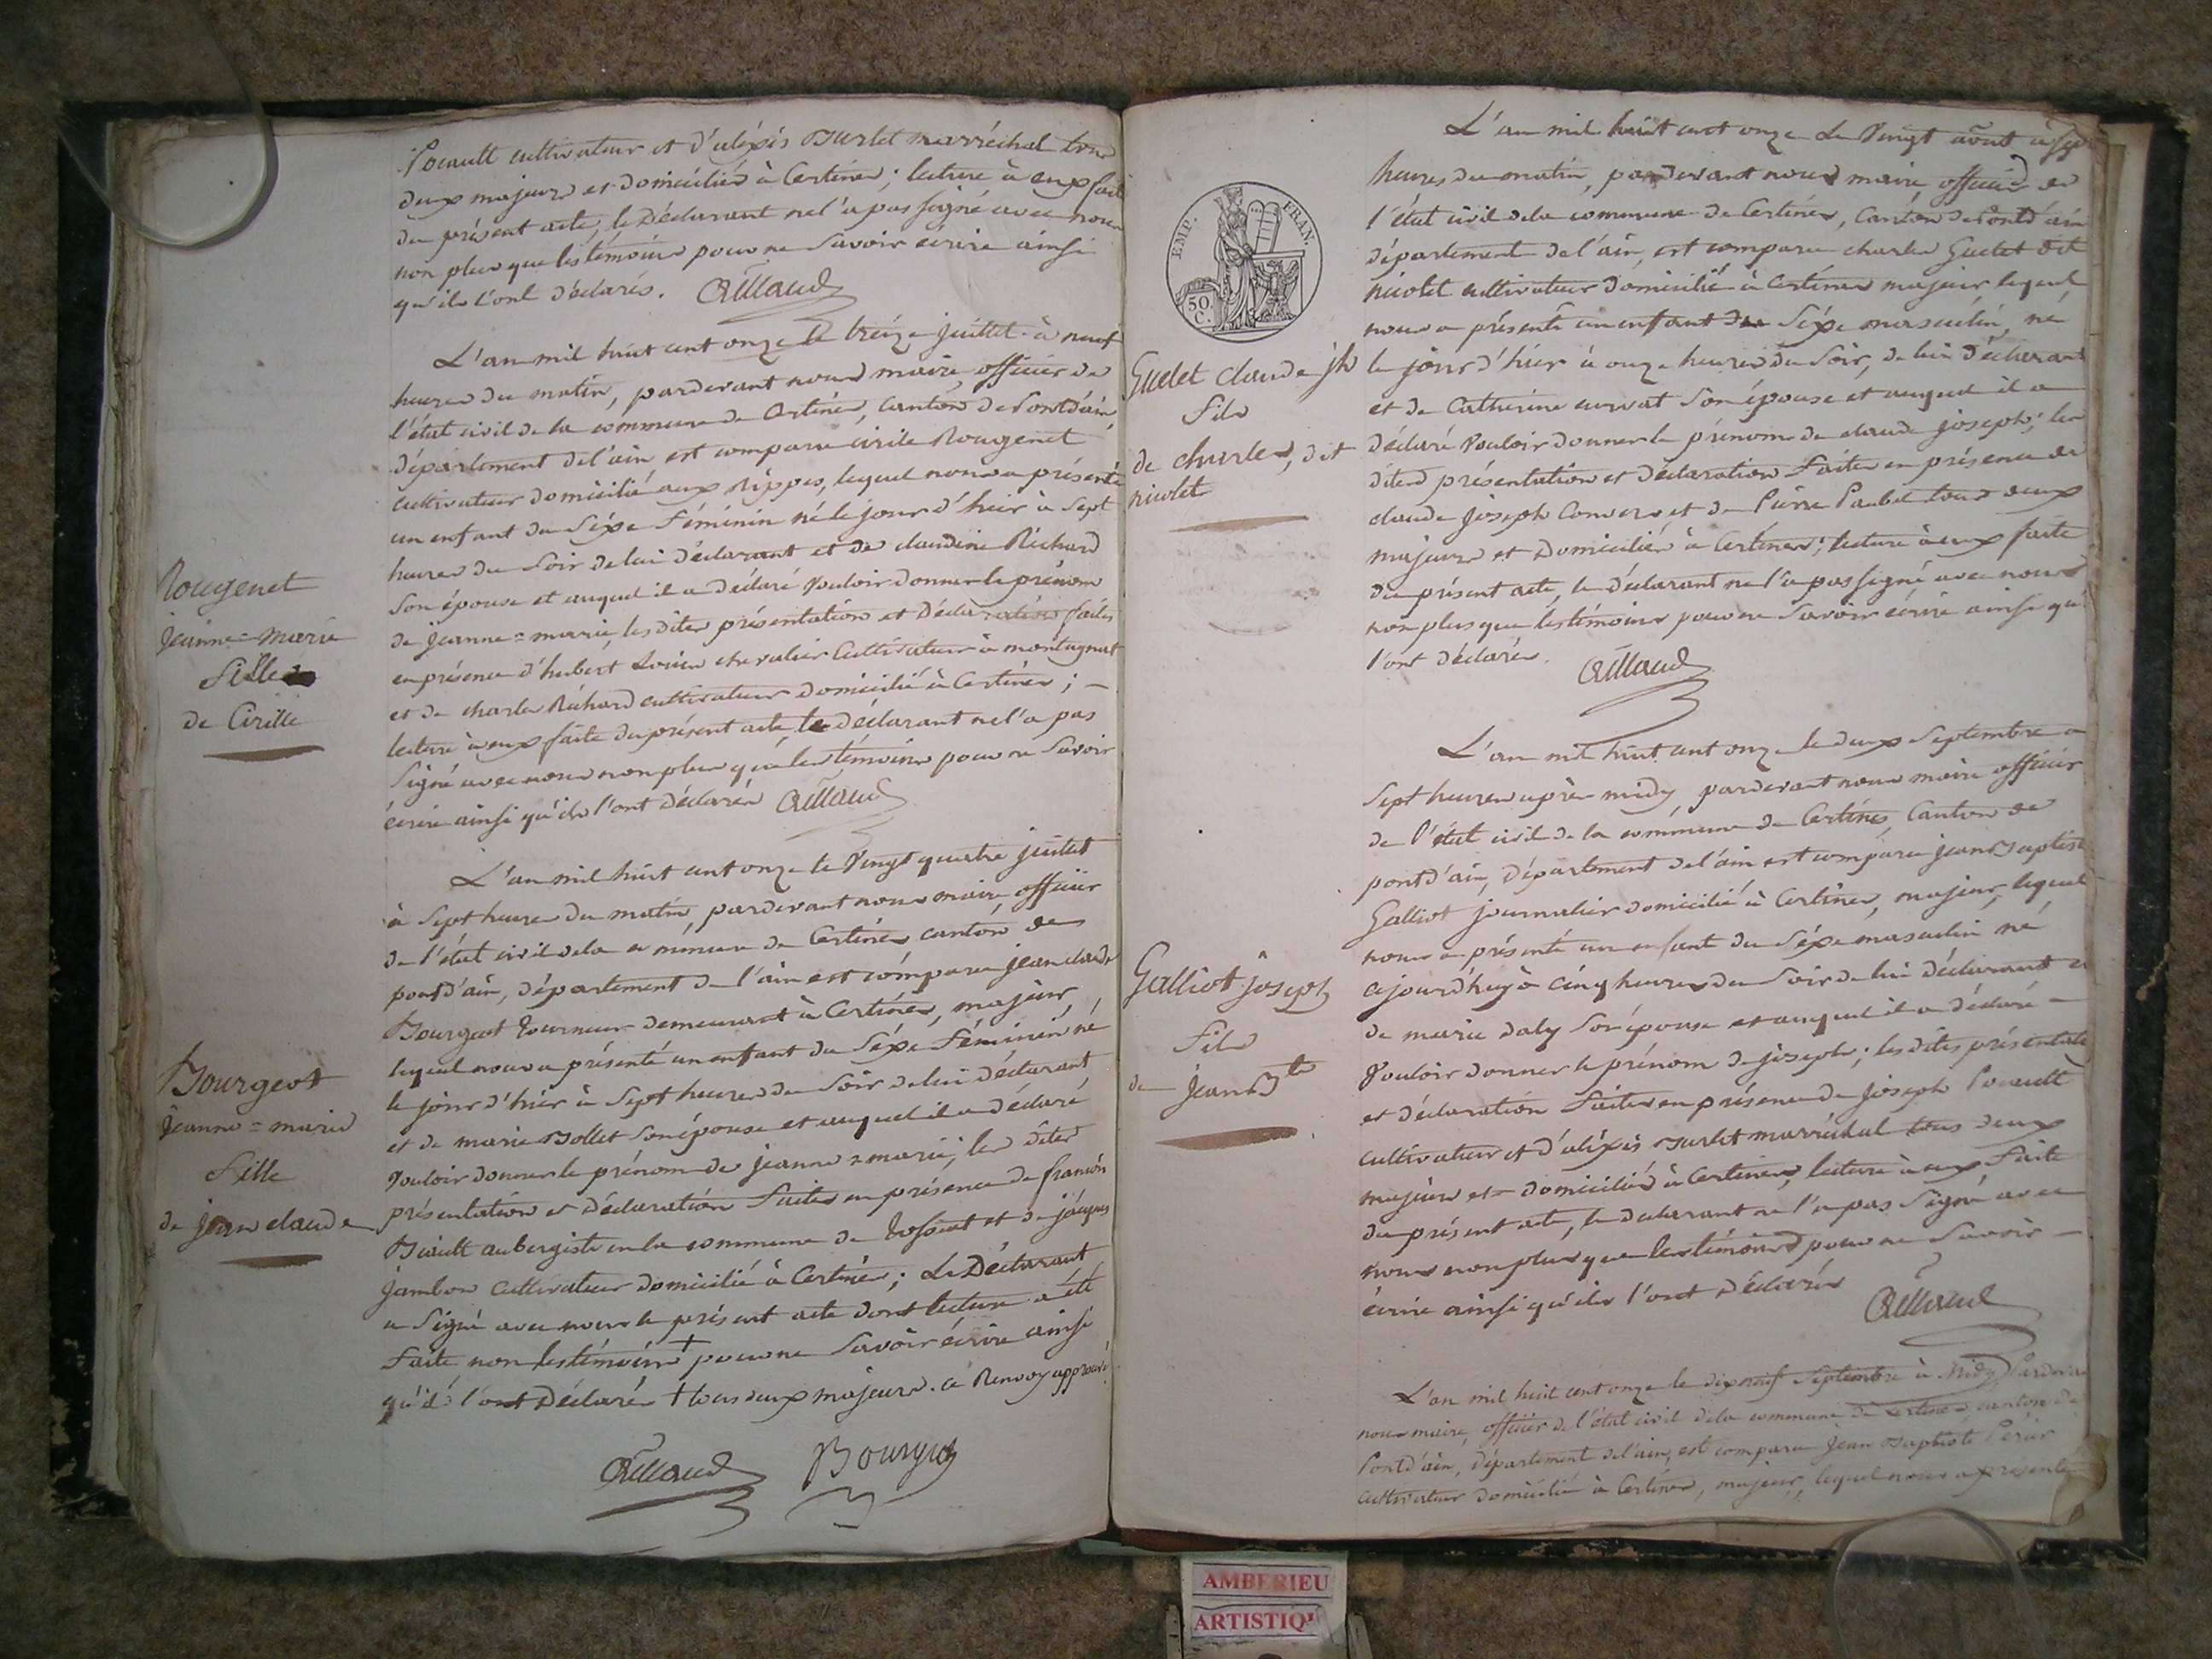 Pocault cultivateur et d'aléxis Burlet marréchal tous
deux majeurs et domiciliés à Certines; lecture à eux faite
du présent acte, le Déclarant ne l'a pas signé avec nous
non plus que les témoins pour ne savoir écrire ainsi
qu'ils l'ont déclarés.
L'an mil huit cent onze le treize juillet à neuf
heures du matin, pardevant nous maire officier de
l'état civil de la commune de Certines, canton de Pontd'ain,
département de l'ain est comparu cirile Rougenet
cultivateur domicilié aux Rippes, lequel nous a présenté
un enfant du Séxe Féminin né le jour d'hier à Sept
heures du Soir de lui déclarant et de claudine Richard
Son épouse et auquel il a déclaré Vouloir donner le prénom
de jeanne=marie, les dites présentation et déclaration faites
en présence d'hubert chevalier Cultivateur à montagnat
et de charles Richard cultivateur domicilié à Certines; —
lecture à eux faite du présent acte, le déclarant ne l'a pas
Signé avec nous non plus que les témoins pour ne Savoir
écrire ainsi qu'ils l'ont déclarés
Rougenet
jeanne=marie
Fille
de Cirille
L'an mil huit cent onze le Vingt quatre juillet
à Sept heures du matin, pardevant nous maire officier
de l'état civil de la commune de Certines canton de
pontd'ain, département de l'ain est comparu jean claude
Bourgeot tourneur demeurant à Certines, majeur,
lequel nous a présenté un enfant du Séxe Féminin né
le jour d'hier à Sept heures du Soir de lui déclarant
et de marie Bollet Son épouse et auquel il a déclaré
Vouloir donner le prénom de jeanne=marie; les dites
présentation et déclaration Faites en présence de françois
aubergiste en la commune de tossiat et de jacques
jambon Cultivateur domicilié à Certines; Le Déclarant
a Signé avec nous le présent acte dont lecture a été
Faite non les témoins + pour ne Savoir écrire ainsi
qu'ils l'ont Déclarés + tous deux majeurs. ce Renvoy approuvé
Bourgeot
jeanne=marie
Fille
de jean claude
EMP. FRAN.
50 C.
L'an mil huit cent onze le Vingt août à
heures du matin, pardevant nous maire officier de
l'état civil de la commune de Certines, Canton de Pontd'ain
département de l'ain, est comparu charles Guelet dit
nicolet cultivateur domicilié à Certines majeur lequel
nous a présenté un enfant du Séxe masculin, né
le jour d'hier à onze heures du Soir, de lui déclarant
et de Catherine Son épouse et auquel il a
déclaré Vouloir donner le prénom de claude joseph; les
dites présentation et déclaration Faites en présence de
claude joseph Convers et de Pierre tous deux
majeurs et Domiciliés à Certines; lecture à eux faite
du présent acte, le déclarant ne l'a pas signé avec nous
non plus que les témoins pour ne Savoir écrire ainsi qu'ils
l'ont déclarés.
Guelet claude jh
Fils
de charles, dit
nicolet
L'an mil huit cent onze le deux Septembre a
Sept heures après midy, pardevant nous maire officier
de l'état civil de la commune de Certines, Canton de
pontd'ain, département de l'ain est comparu jean Baptiste
Galliot journalier domicilié à Certines, majeur, lequel
nous a présenté un enfant du Séxe masculin né
cejourd'huy à cinq heures du Soir de lui déclarant et
de marie daly Son épouse et auquel il a déclaré —
Vouloir donner le prénom de joseph; les dites présentation
et déclaration Faites en présence de joseph Pocault
cultivateur et d'aléxis Burlet marréchal tous deux
majeurs et domiciliés à Certines, lecture à eux Faite
du présent acte, le declarant ne l'a pas Signé avec
nous non plus que les témoins pour ne Savoir —
écrire ainsi qu'ils l'ont Déclarés
Galliot joseph
Fils
de jean Bte
L'an mil huit cent onze le dix neuf Septembre à Midy Pardevant
nous maire, officier de l'état civil de la commune de Certines canton de
Pontd'ain, département de l'ain, est comparu Jean Baptiste Périer
cultivateur domicilié à Certines, majeur, lequel nous a présenté
AMBERIEU
ARTISTIQU